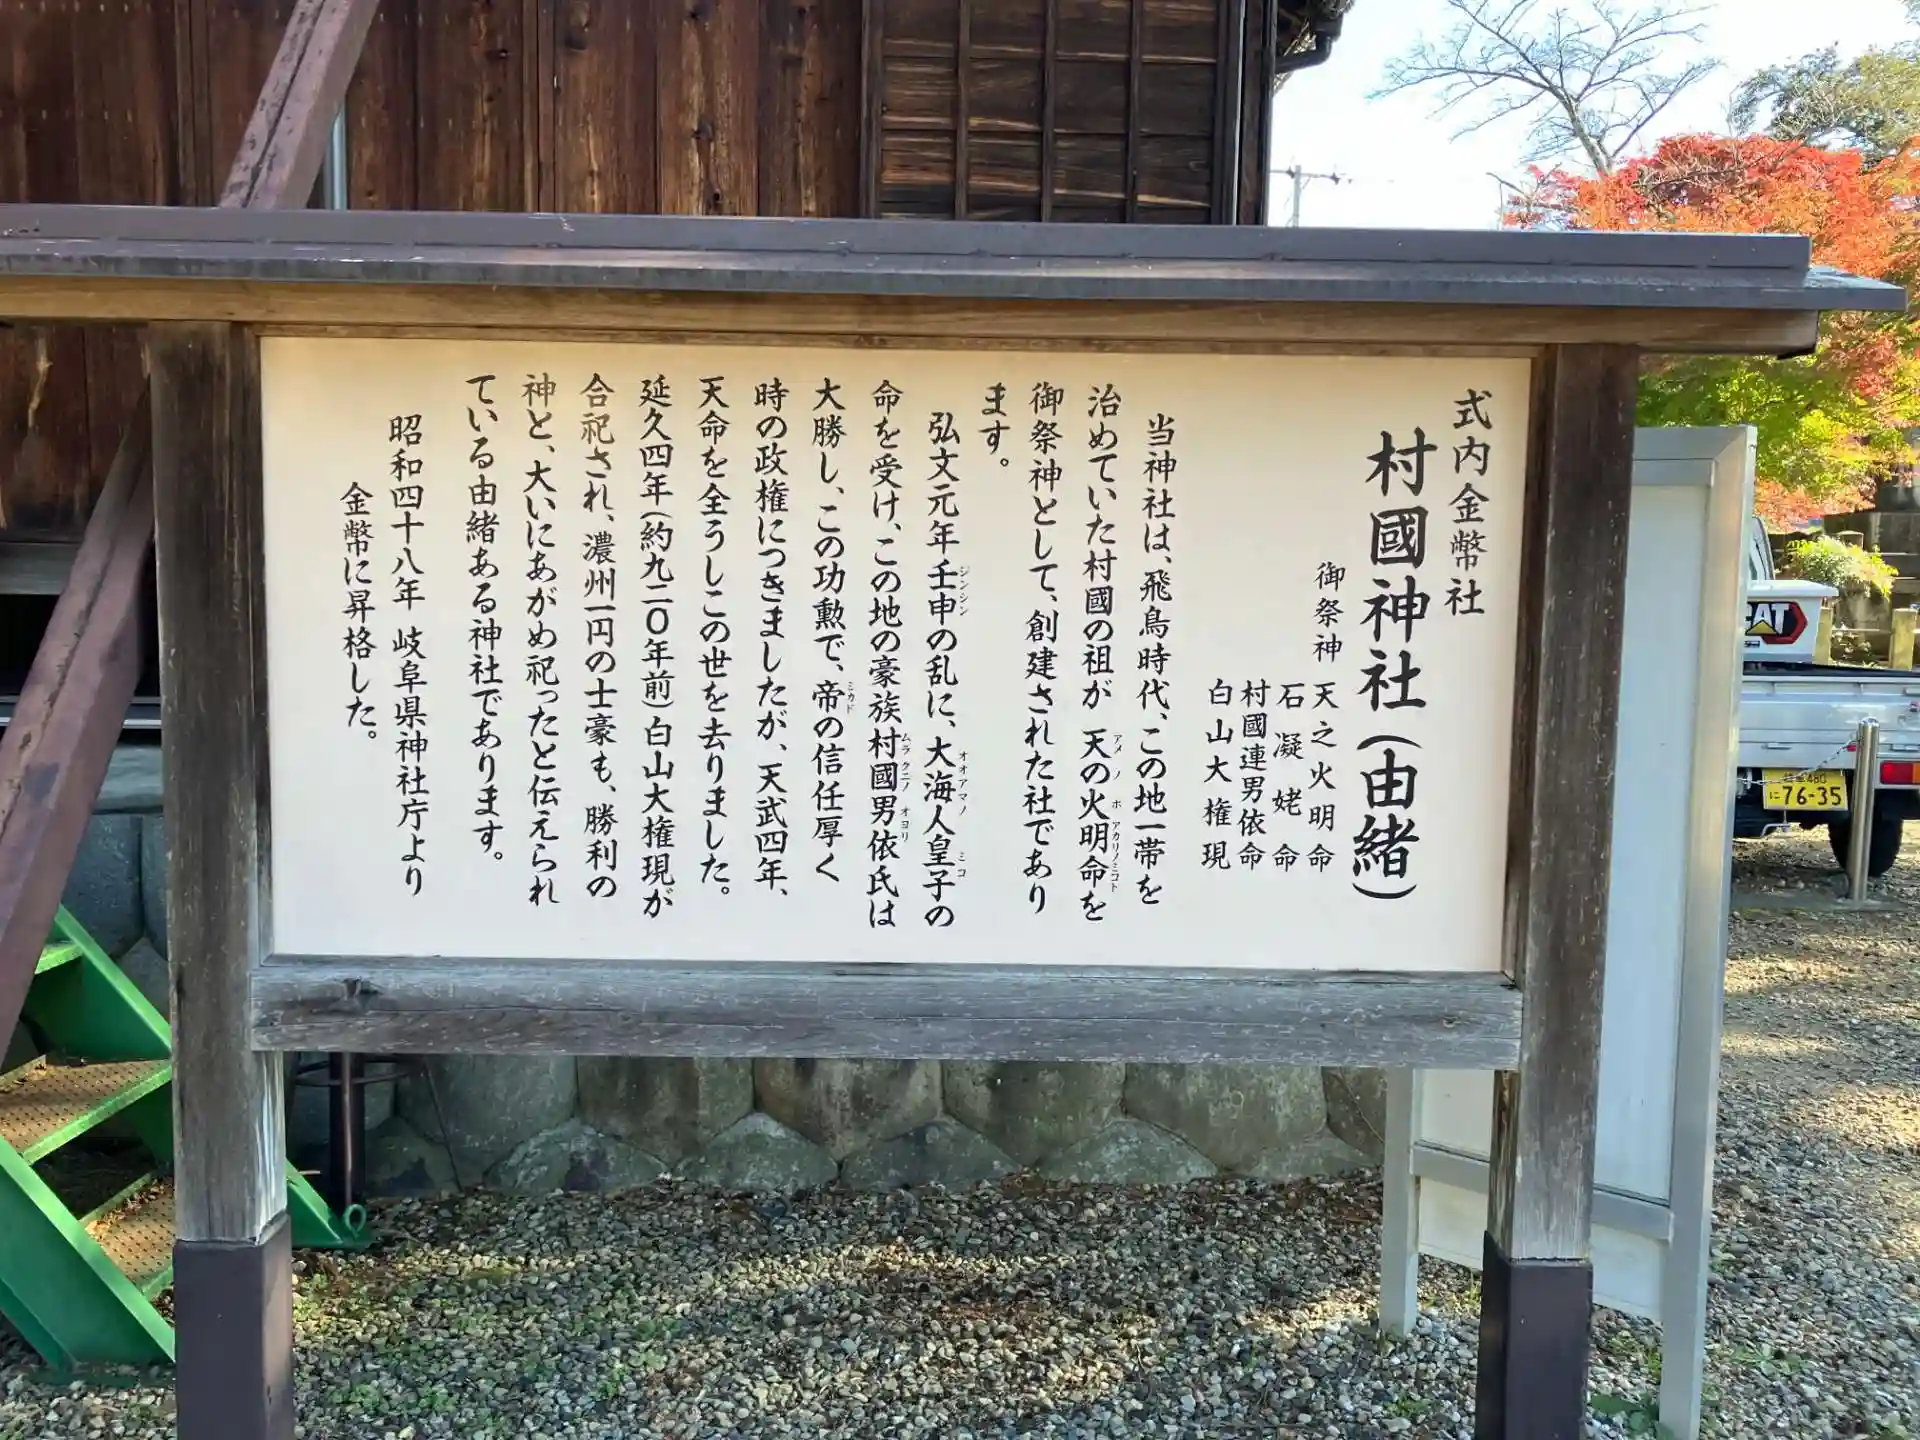 式内金幣社
村國神社(由緒)
御祭神 天之火明命
石凝姥命
村國連男依命
白山大権現
当神社は、飛鳥時代、この地一帯を
治めていた村國の祖が 天の火明命を
アメノ ホ アカリノミコト
御祭神として、創建された社であり
ます。
弘文元年壬申の乱に、大海人皇子の
ジンシン オオアマノ ミコ
命を受け、この地の豪族村國男依氏は
ムラクニノ オヨリ
大勝し、この功勲で、帝の信任厚く
ミカド
時の政権につきましたが、天武四年、
天命を全うしこの世を去りました。
延久四年(約九二〇年前)白山大権現が
合祀され、濃州一円の士豪も、勝利の
神と、大いにあがめ祀ったと伝えられ
ている由緒ある神社であります。
昭和四十八年 岐阜県神社庁より
金幣に昇格した。
CAT
480
に 76-35